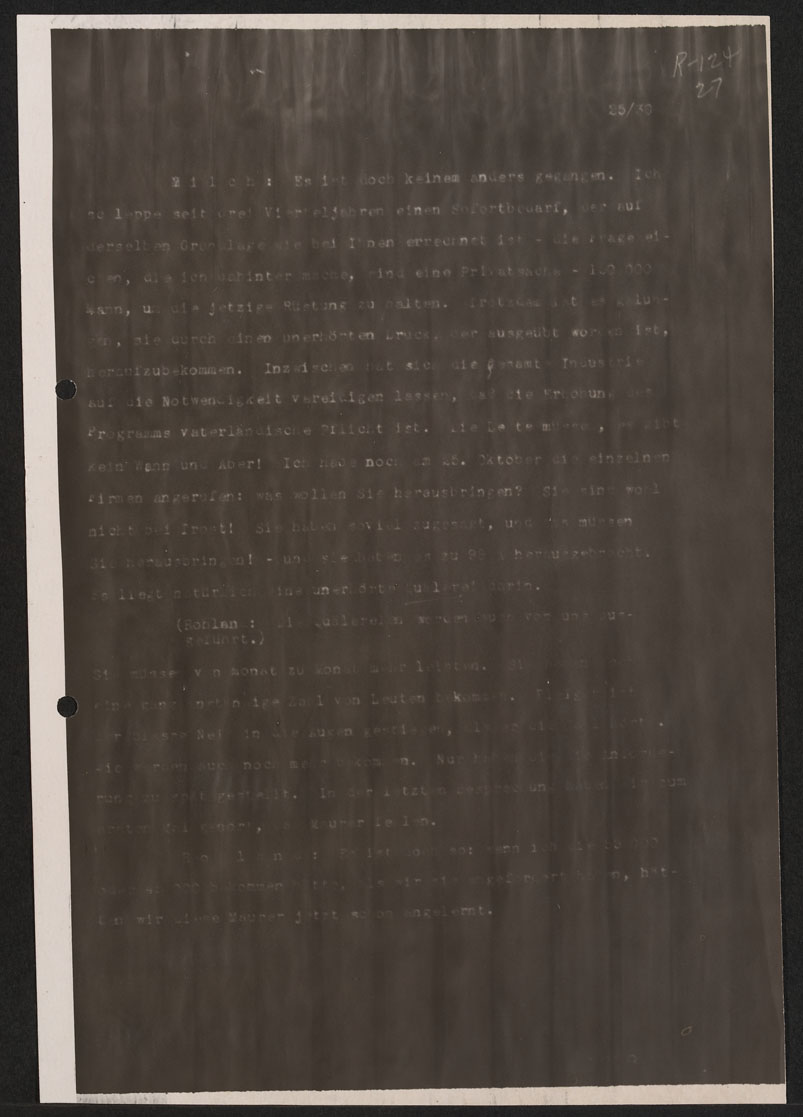 R-124
27
25/30
M i l c h : Es ist doch keinem anders gegangen. Ich
schleppe seit drei Vierteljahren einen Sofortbedarf, der auf
derselben Grundlage wie bei Ihnen errechnet ist - die Fragezei-
chen, die ich dahinter mache, sind eine Privatsache - 100.000
Mann, um die jetzige Rüstung zu halten. Trotzdem ist es gelun-
gen, sie durch einen unerhörten Druck, der ausgeübt worden ist,
heraufzubekommen. Inzwischen hat sich die gesamte Industrie
auf die Notwendigkeit vereidigen lassen, daß die Erhöhung des
Programms vaterländische Pflicht ist. Die Leute müssen, es gibt
kein Wenn und Aber! Ich habe noch am 25. Oktober die einzelnen
Firmen angerufen: was wollen Sie herausbringen? Sie sind wohl
nicht bei Trost! Sie haben soviel zugesagt, und das müssen
Sie herausbringen! - und sie haben es zu 99 % herausgebracht.
Es liegt natürlich eine unerhörte Quälerei darin.
(Rohland: Die Quälereien werden auch von uns aus-
geführt.)
Sie müssen von Monat zu Monat mehr leisten. Sie haben
eine ganz anständige Zahl von Leuten bekommen.
der blasse Neid in die Augen gestiegen, als er die
Sie werden auch noch mehr bekommen. Nur haben Sie die Anforde-
rung zu spät gestellt. In der letzten Besprechung haben wir zum
ersten Mal gehört, daß Maurer fehlen.
R o h l a n d : Es ist doch so: wenn ich die
oder 000 bekommen hätte, als wir sie angefordert haben, hät-
ten wir diese Maurer jetzt schon angelernt.